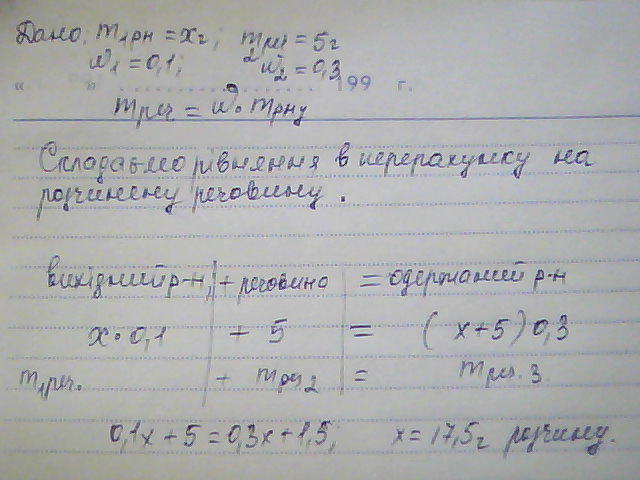 Дано: m₁рн = xг; m₂реч = 5г
w₁ = 0,1; w₂ = 0,3
« » 199 г.
mреч = w · mрну
Складаємо рівняння в перерахунку на
розчинену речовину.
вихідний р-н + речовина = одержаний р-н
x · 0,1 + 5 = (x+5) 0,3
m₁реч. + mреч₂ = mреч. 3
0,1x + 5 = 0,3x + 1,5; x = 17,5г розчину.